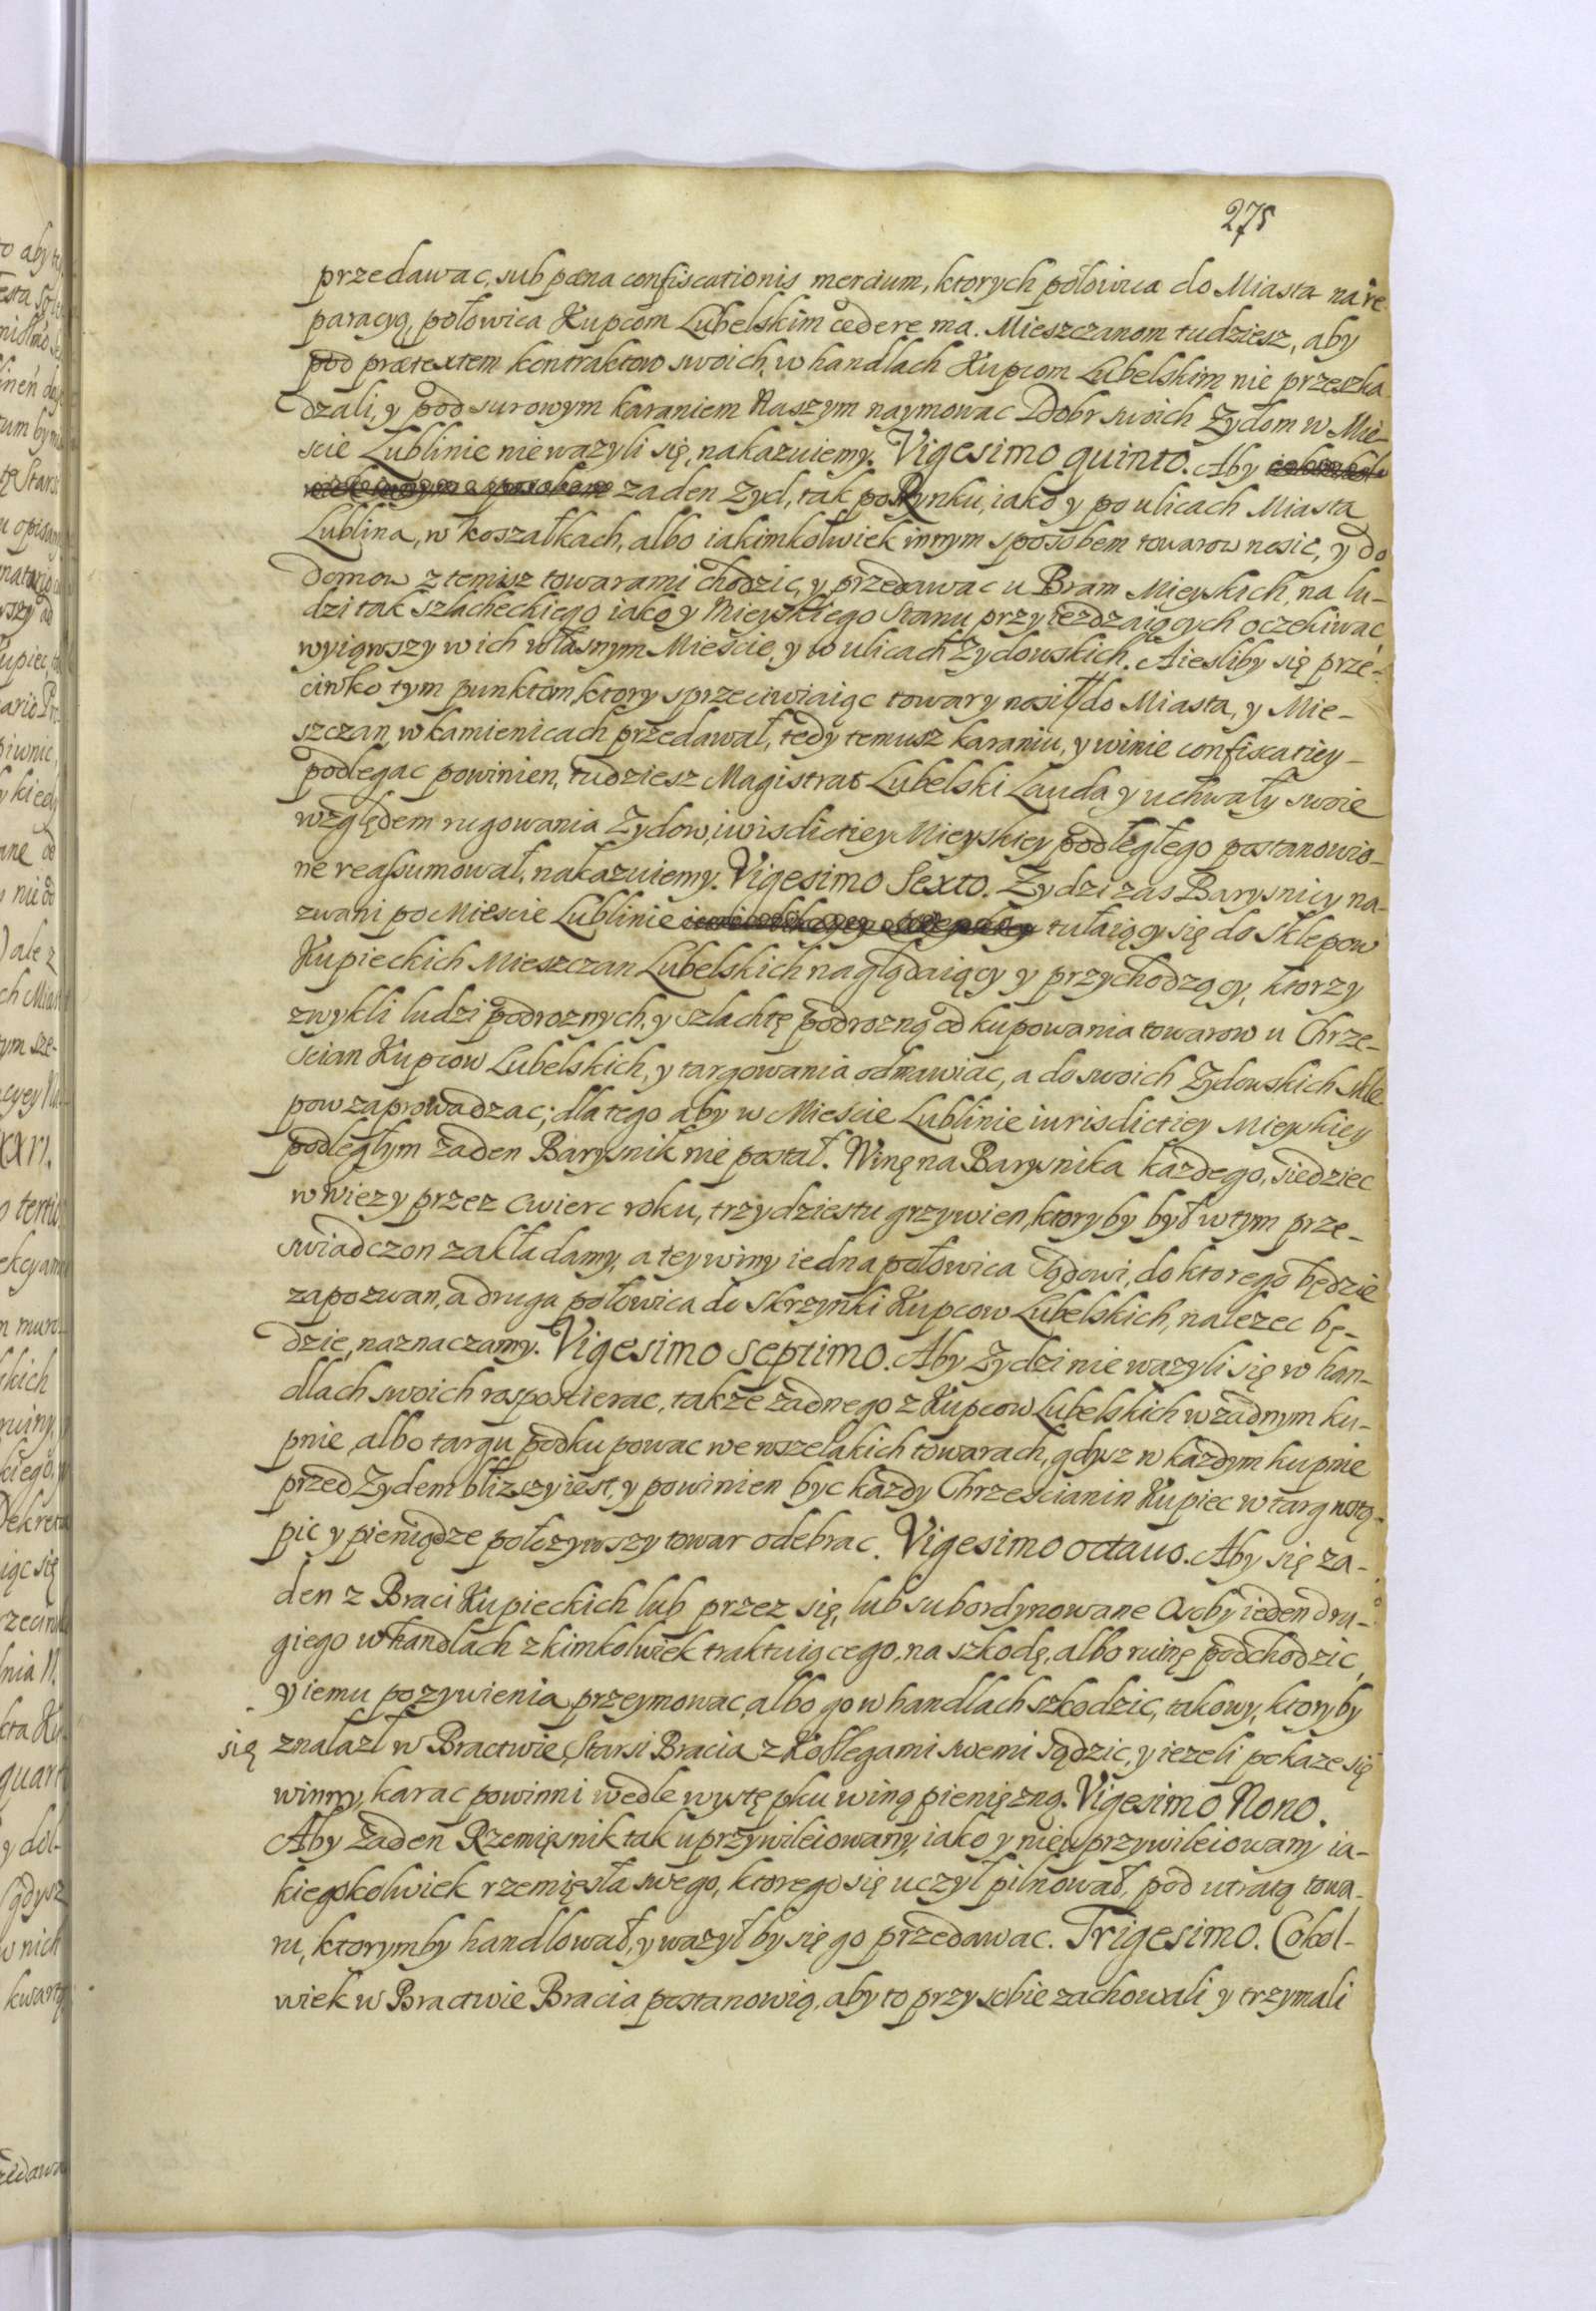 275
przedawac, sub pœna confiscationis mercium, ktorych połowica do Miasta na re-
paracyą, połowica Kupcom Lubelskim cedere ma. Mieszczanom tudziesz, aby
pod prætextem kontraktow swoich, w handlach Kupcom Lubelskim nie przeszka
dzali, y pod surowym karaniem Naszym naymowac Dobr swoich Zydom w Mie-
scie Lublinie niewazyli się, nakazuiemy. Vigesimo quinto. Aby
zaden Zyd, tak po Rynku, iako y po ulicach Miasta
Lublina, w koszałkach, albo iakimkolwiek innym sposobem towarow nosic, y do
domow z temisz towarami chodzic, y przedawac u Bram Mieyskich, na lu-
dzi tak szlacheckiego iako y Mieyskiego Stanu przyiezdzaiących oczekiwac
wyiąwszy w ich własnym Mieście, y w ulicach Zydowskich. A iesliby się prze-
ciwko tym punktom, ktory sprzeciwiaiąc towary nosił do Miasta, y Mie-
szczan w kamienicach przedawał, tedy temusz karaniu, y winie confiscatiey
podlegac powinien, tudziesz Magistrat Lubelski Lauda y uchwały swoie
względem rugowania Zydow, iurisdictiey Mieyskiey podległego postanowio-
ne reassumował, nakazuiemy. Vigesimo Sexto. Zydzi zas Barysnicy na-
zwani po Miescie Lublinie tułaiący się do sklepow
Kupieckich Mieszczan Lubelskich naglądaiący y przychodzący, ktorzy
zwykli ludzi podroznych, y szlachtę podrozną od kupowania towarow u Chrze-
scian Kupcow Lubelskich, y targowania odmawiac, a do swoich Zydowskich skle
pow zaprowadzac; dlatego aby w Mieście Lublinie iurisdictiey Mieyskiey
podległym żaden Barysnik nie postał. Winę na Barysnika każdego, siedziec
w wiezy przez cwierc roku, trzydziestu grzywien, ktoryby był w tym prze-
swiadczon zakładamy, a tey winy iedna połowica Sądowi, do ktorego będzie
zapozwan, a druga połowica do skrzynki Kupcow Lubelskich, nalezec bę-
dzie, naznaczamy. Vigesimo septimo. Aby Zydzi nie wazyli się w han-
dlach swoich rosposcierac, także żadnego z Kupcow Lubelskich w żadnym ku-
pnie, albo targu podkupowac we wszelakich towarach, gdysz w każdym kupnie
przed Zydem bliższy iest, y powinien byc każdy Chrześcianin Kupiec w targ wstą-
pic y pieniądze połozywszy towar odebrac. Vigesimo octauo. Aby się za-
den z Braci Kupieckich lub przez się, lub subordynowane Osoby ieden dru-
giego w handlach z kimkolwiek traktuiącego, na szkodę, albo ruinę podchodzic,
y iemu pozywienia przeymowac, albo go w handlach szkodzic, takowy, ktoryby
się znalazł w Bractwie, Starsi Bracia z Kollegami swemi sądzic, y iezeli pokaze się
winny, karac powinni wedle występku winą pieniężną. Vigesimo Nono.
Aby żaden Rzemięsnik tak uprzywileiowany, iako y nieuprzywileiowany ia-
kiegokolwiek rzemięsła swego, ktorego się uczył pilnował, pod utratą towa-
ru, ktorymby handlował, y wazył by się go przedawac. Trigesimo. Cokol-
wiek w Bractwie Bracia postanowią, aby to przy sobie zachowali y trzymali